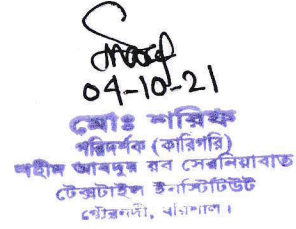 04-10-21
মোঃ শরিফ
পরিদর্শক (কারিগরি)
শহীদ আবদুর রব সেরনিয়াবাত
টেক্সটাইল ইনস্টিটিউট
গৌরনদী, বরিশাল।